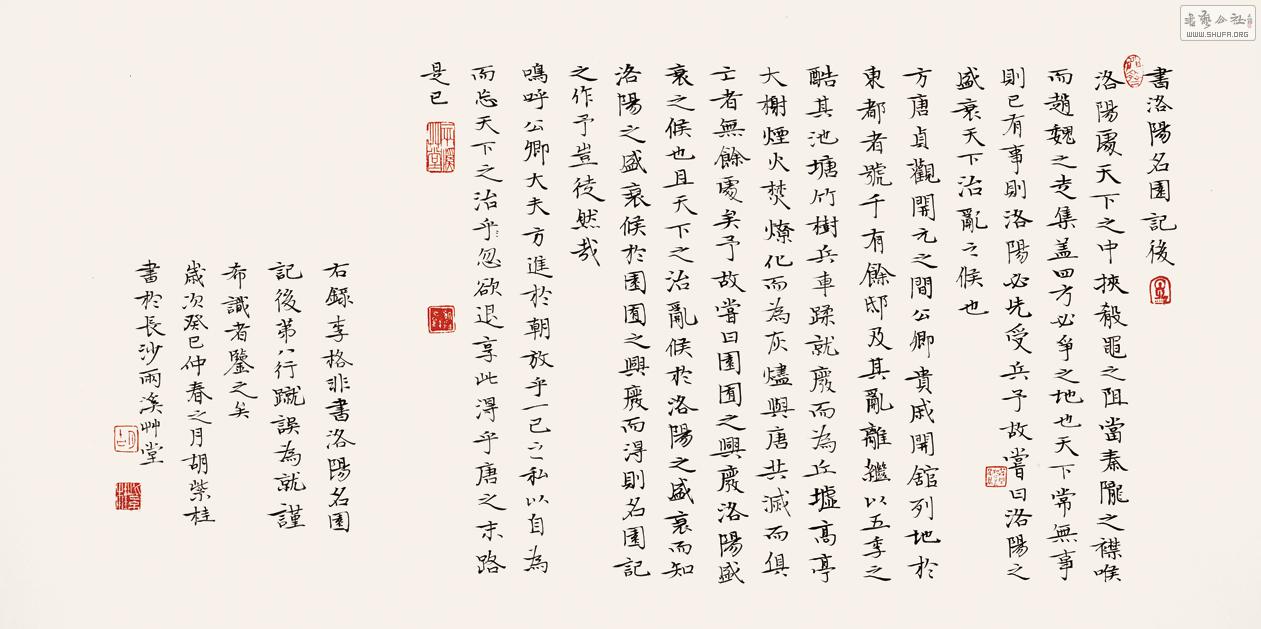 書洛陽名園記後
洛陽處天下之中挾殽黽之阻當秦隴之襟喉
而趙魏之走集盖四方必爭之地也天下常無事
則已有事則洛陽必先受兵予故嘗曰洛陽之
盛衰天下治亂之候也
方唐貞觀開元之間公卿貴戚開舘列地於
東都者號千有餘邸及其亂離繼以五季之
酷其池塘竹樹兵車蹂就廢而為丘墟高亭
大榭煙火焚燎化而為灰燼與唐共滅而俱
亡者無餘處矣予故嘗曰園囿之興廢洛陽盛
衰之候也且天下之治亂候於洛陽之盛衰而知
洛陽之盛衰候於園囿之興廢而得則名園記
之作予豈徒然哉
鳴呼公卿大夫方進於朝放乎一己之私以自為
而忘天下之治乎忽欲退享此得乎唐之末路
是已
右錄李格非書洛陽名園
記後第八行蹴誤為就謹
布識者鑒之矣
歲次癸巳仲春之月胡紫桂
書於長沙兩溪艸堂
WWW.SHUFA.ORG